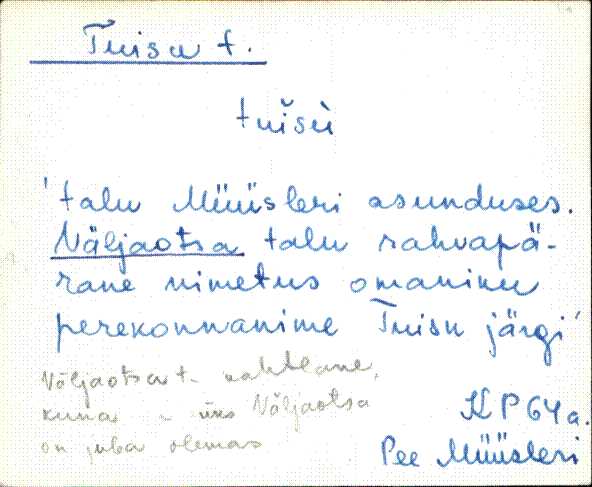 Tuisu t.
tuĭsù
'talu Müüsleri asunduses.
Väljaotsa talu rahvapä-
rane nimetus omaniku
perekonnanime Tuisu järgi'
Väljaotsa t. kahtlane,
kuna üks Väljaotsa
on juba olemas
KP 64a.
Pee Müüsleri